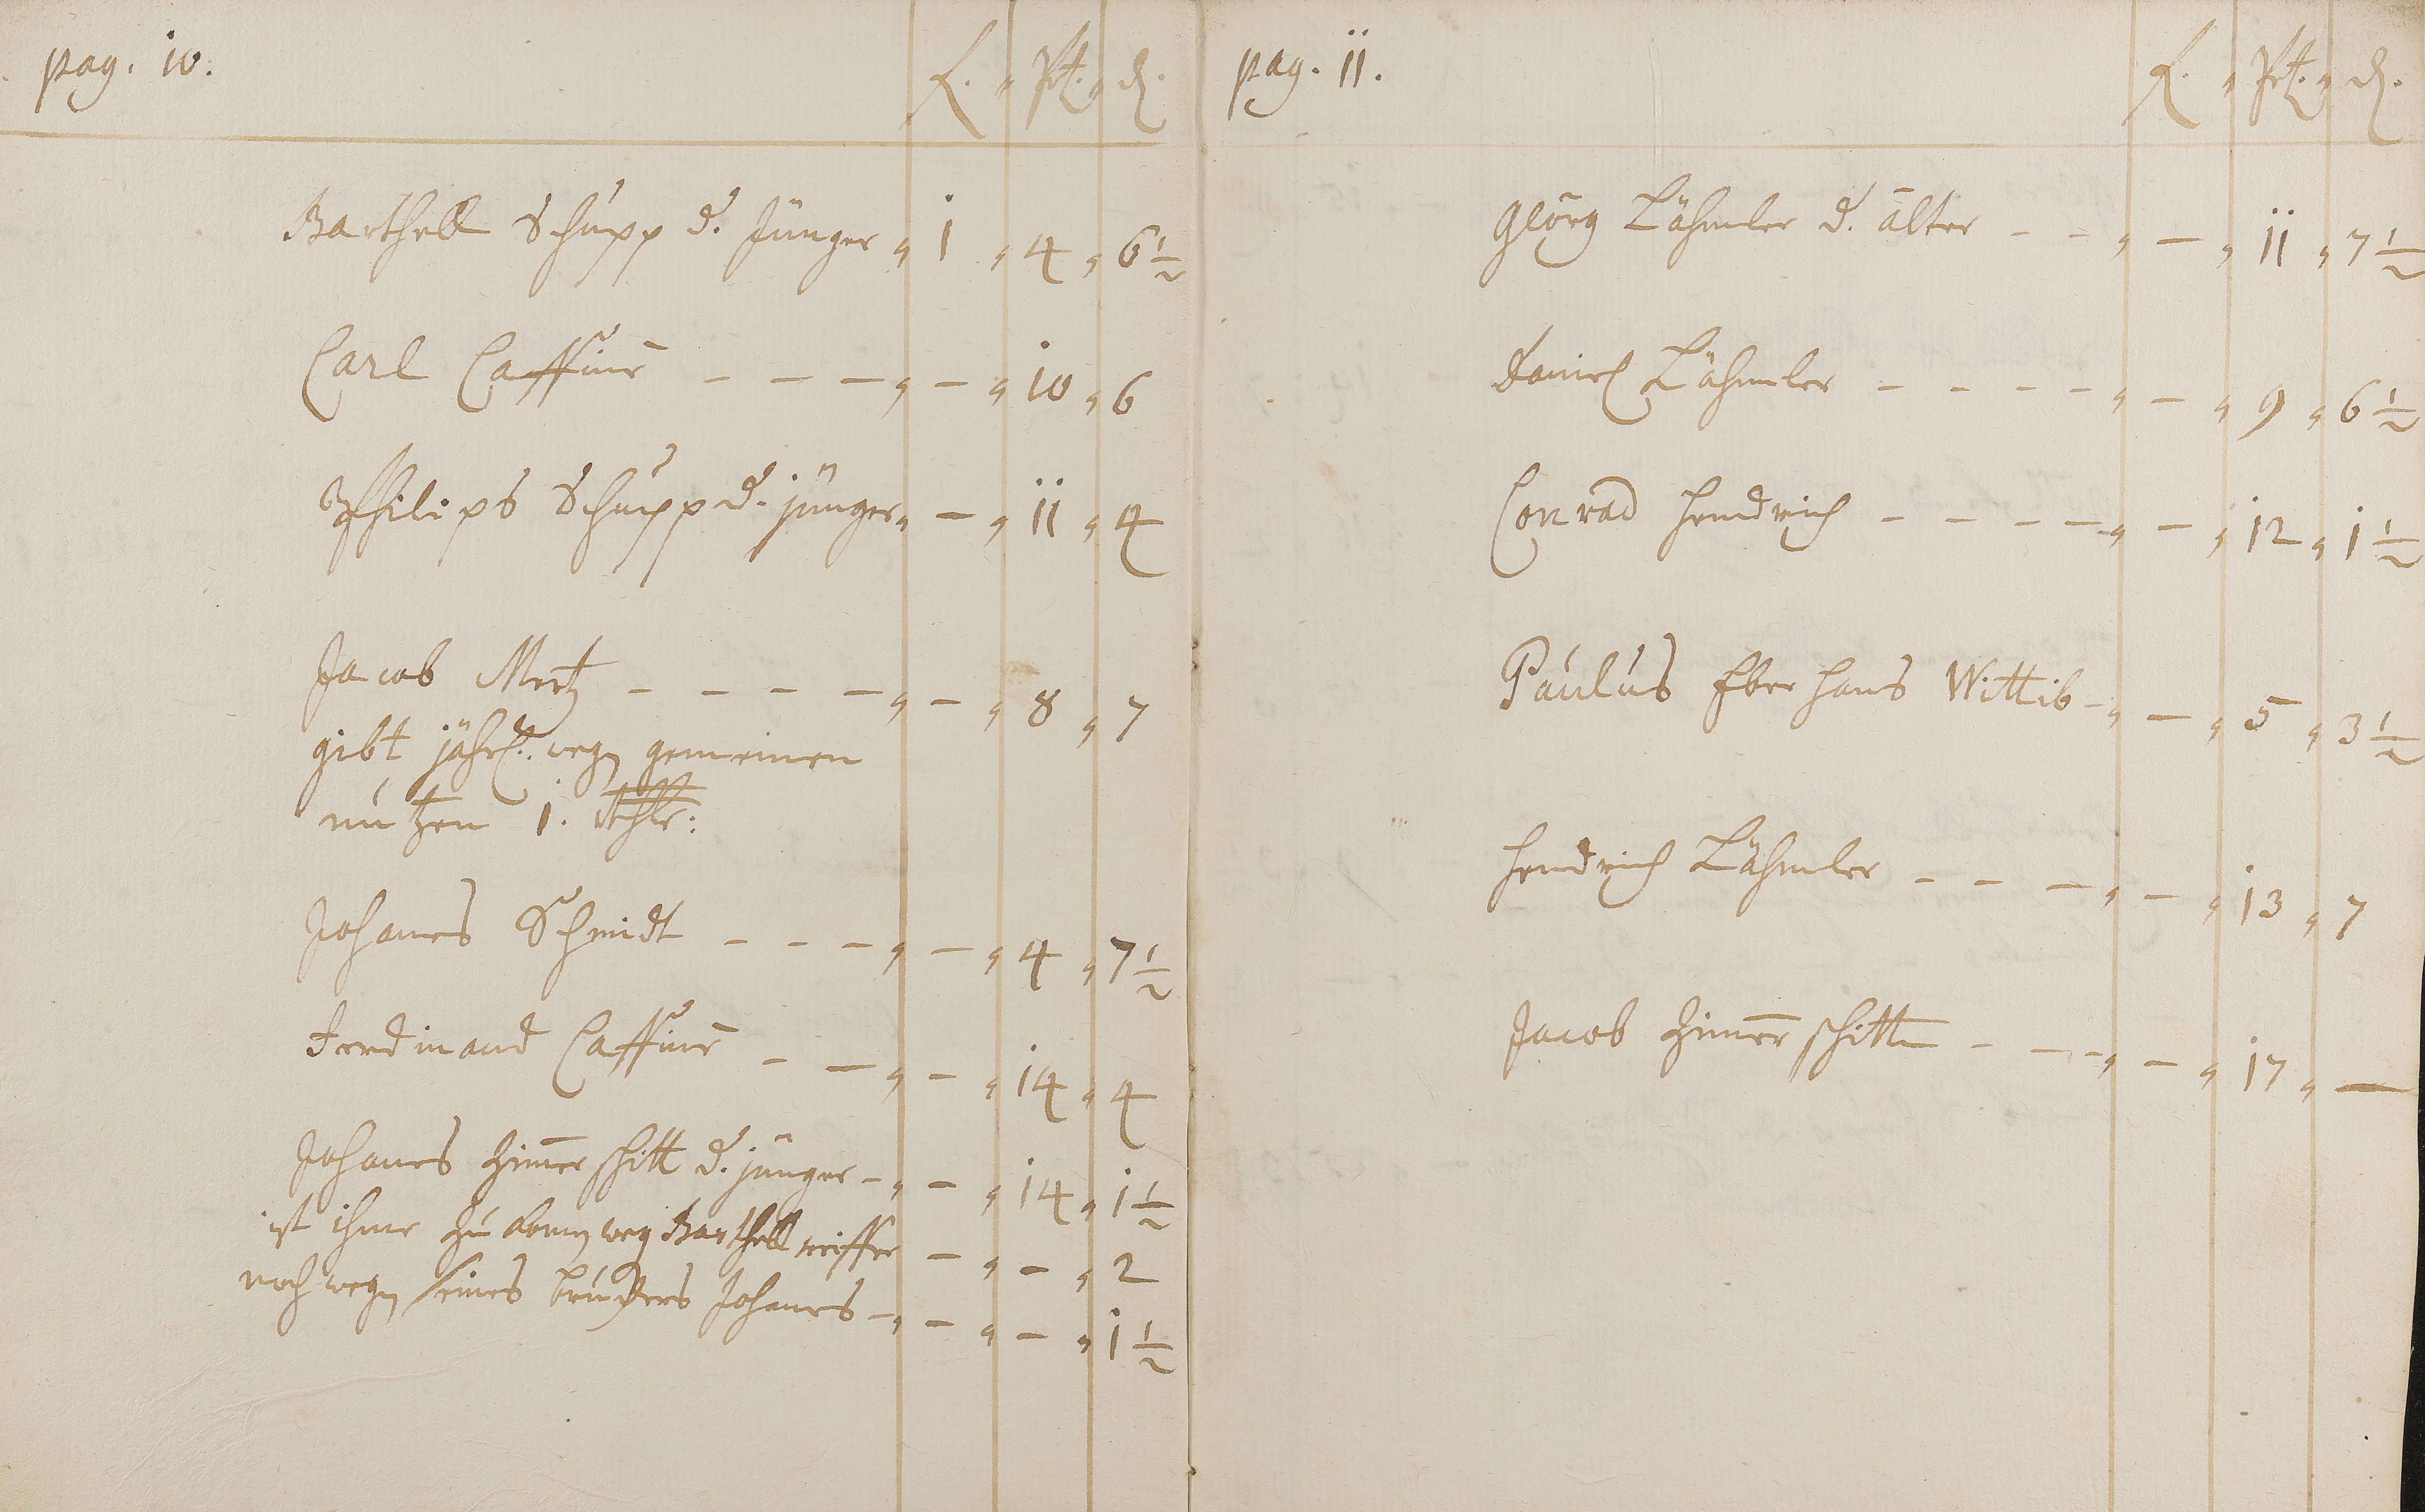 pag. 10.
f. " Xt. " d.
Barthell Schupp d. Jünger " 1 " 4 " 6 ½
Carl Cassius - - - " - " 10 " 6
Philips Schupp d. jünger " - " 11 " 4
Jacob Mertz - - - - " - " 8 " 7
gibt jährl. wegn gemeinen
nützen 1. Rthlr:
Johannes Schmidt - - - " - " 4 " 7 ½
Ferdinand Cassius - - " - " 14 " 4
Johannes Zimerschitt d. jünger - " - " 14 " 1 ½
ist ihme zu weg Barthell - " - " 2
noch wegn seines bruders Johannes - " - " - " 1 ½
pag. 11.
f. " Xt. " d.
Georg Lähmler d. älter - - " - " 11 " 7 ½
Daniel Lähmler - - - - " - " 9 " 6 ½
Conrad Hendrich - - - - " - " 12 " 1 ½
Paulus Eberhans Wittib - " - " 5 " 3 ½
Hendrich Lähmler - - - " - " 13 " 7
Jacob Zimerschitt - - - " - " 17 " -